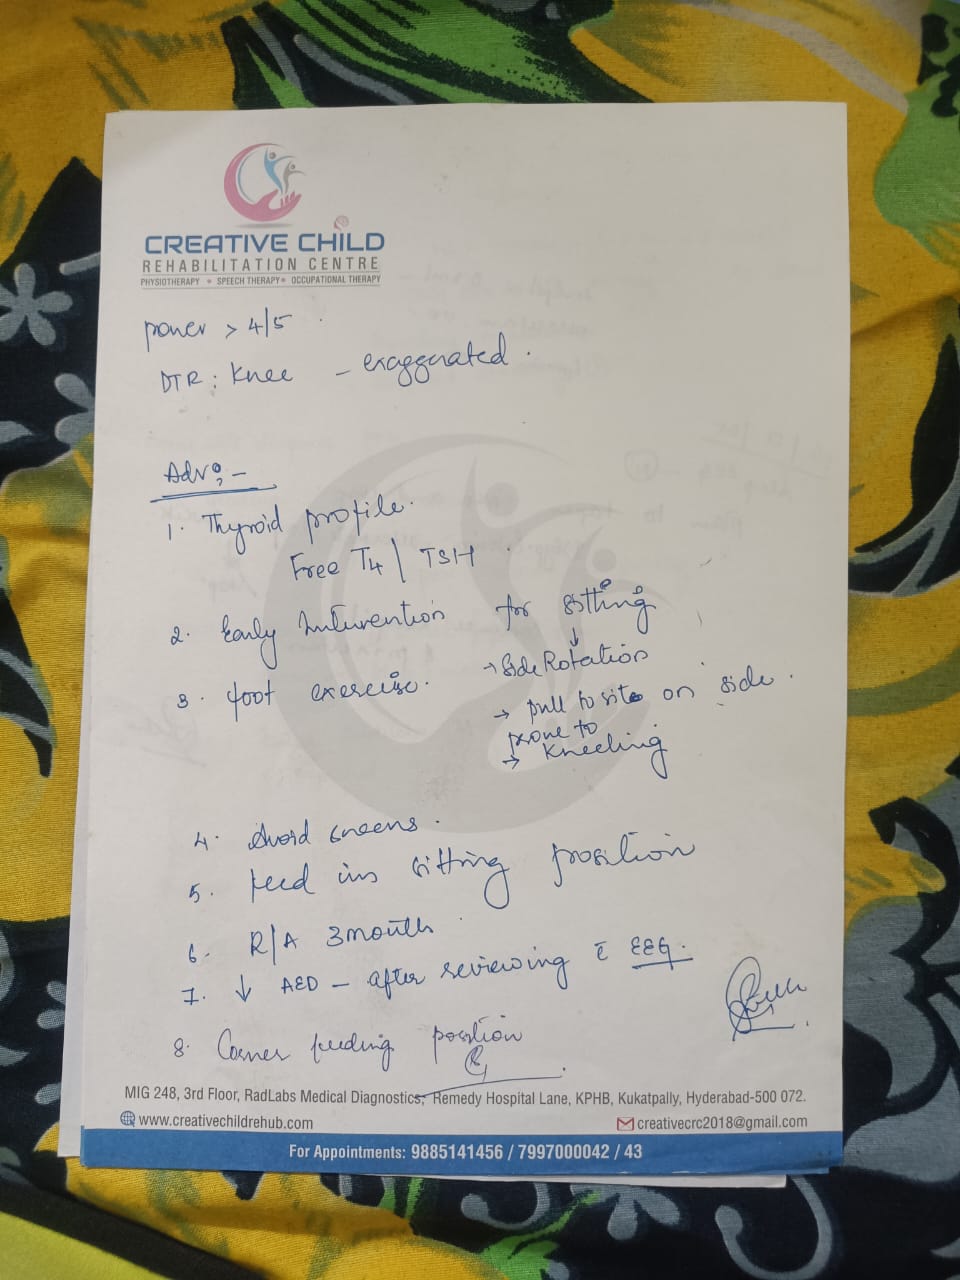 CREATIVE CHILD
REHABILITATION CENTRE
PHYSIOTHERAPY • SPEECH THERAPY • OCCUPATIONAL THERAPY
power > 4/5
DTR : Knee - exaggerated.
Adv:-
1. Thyroid profile.
Free T4 / TSH
2. Early Intervention for sitting
↓
3. foot exercise.
→ Side Rotation
→ pull to site on side.
→ prone to kneeling
4. Avoid screens.
5. feed in sitting position
6. R/A 3 month
7. ↓ AED - after reviewing c̄ EEG.
8. Corner feeding position
MIG 248, 3rd Floor, RadLabs Medical Diagnostics, Remedy Hospital Lane, KPHB, Kukatpally, Hyderabad-500 072.
www.creativechildrehub.com creativecrc2018@gmail.com
For Appointments: 9885141456 / 7997000042 / 43